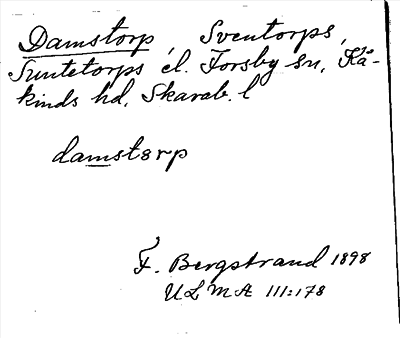 Damstorp, Sventorps,
Suntetorps el. Forsby sn, Kå-
kinds hd, Skarab. l
damstorp
F. Bergstrand 1898
ULMA 111:178